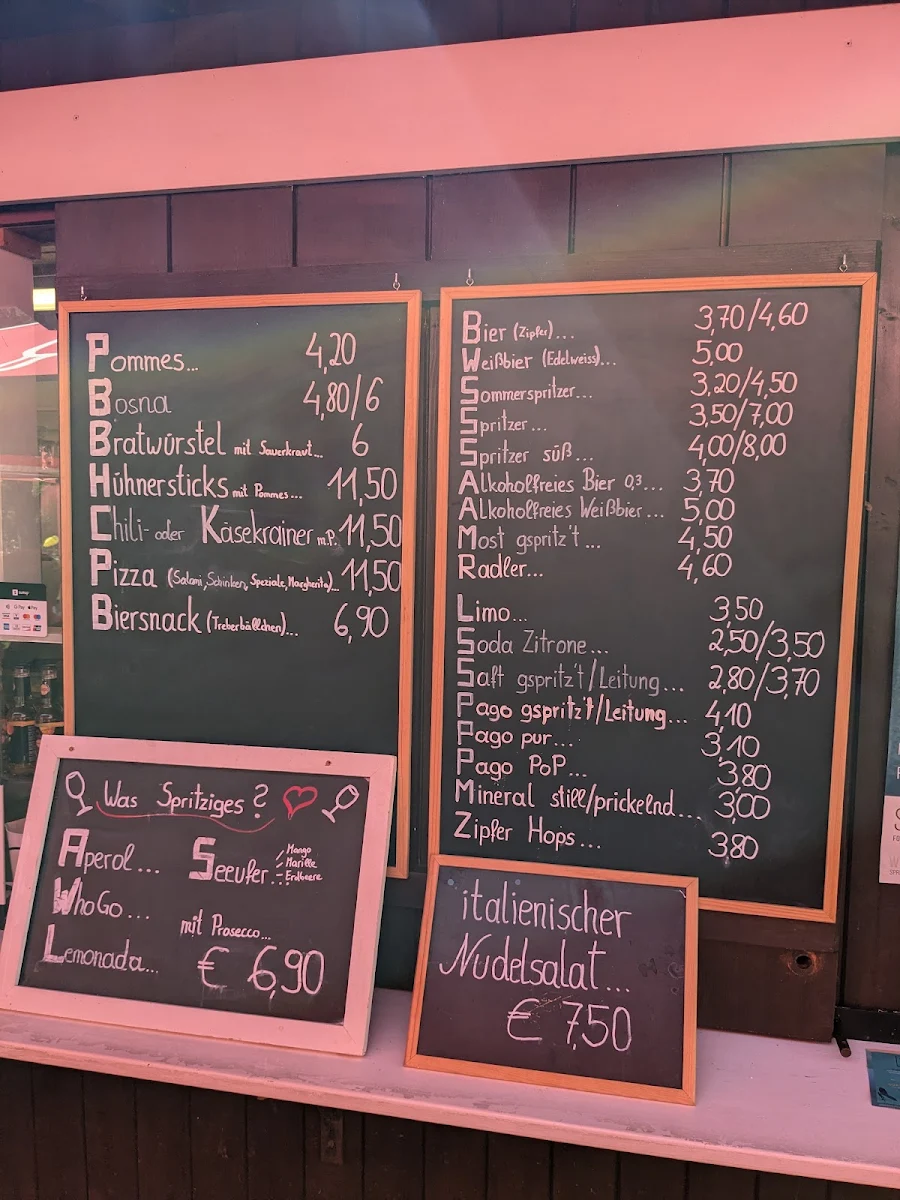 Pommes... 4,20
Bosna 4,80/6
Bratwürstel mit Sauerkraut... 6
Hühnersticks mit Pommes... 11,50
Chili- oder Käsekrainer m.P. 11,50
Pizza (Salami, Schinken, Speziale, Margherita)... 11,50
Biersnack (Treberbällchen)... 6,90
Bier (Zipfer)... 3,70/4,60
Weißbier (Edelweiss)... 5,00
Sommerspritzer... 3,20/4,50
Spritzer... 3,50/7,00
Spritzer süß... 4,00/8,00
Alkoholfreies Bier 0,3... 3,70
Alkoholfreies Weißbier... 5,00
Most gspritz't... 4,50
Radler... 4,60
Limo... 3,50
Soda Zitrone... 2,50/3,50
Saft gspritz't/Leitung... 2,80/3,70
Pago gspritz't/Leitung... 4,10
Pago pur... 3,10
Pago PoP... 3,80
Mineral still/prickelnd... 3,00
Zipfer Hops... 3,80
Was Spritziges?
Aperol...
WhoGo...
Lemonada...
Seeufer...
Mango
Marille
Erdbeere
mit Prosecco...
€ 6,90
italienischer
Nudelsalat...
€ 7,50